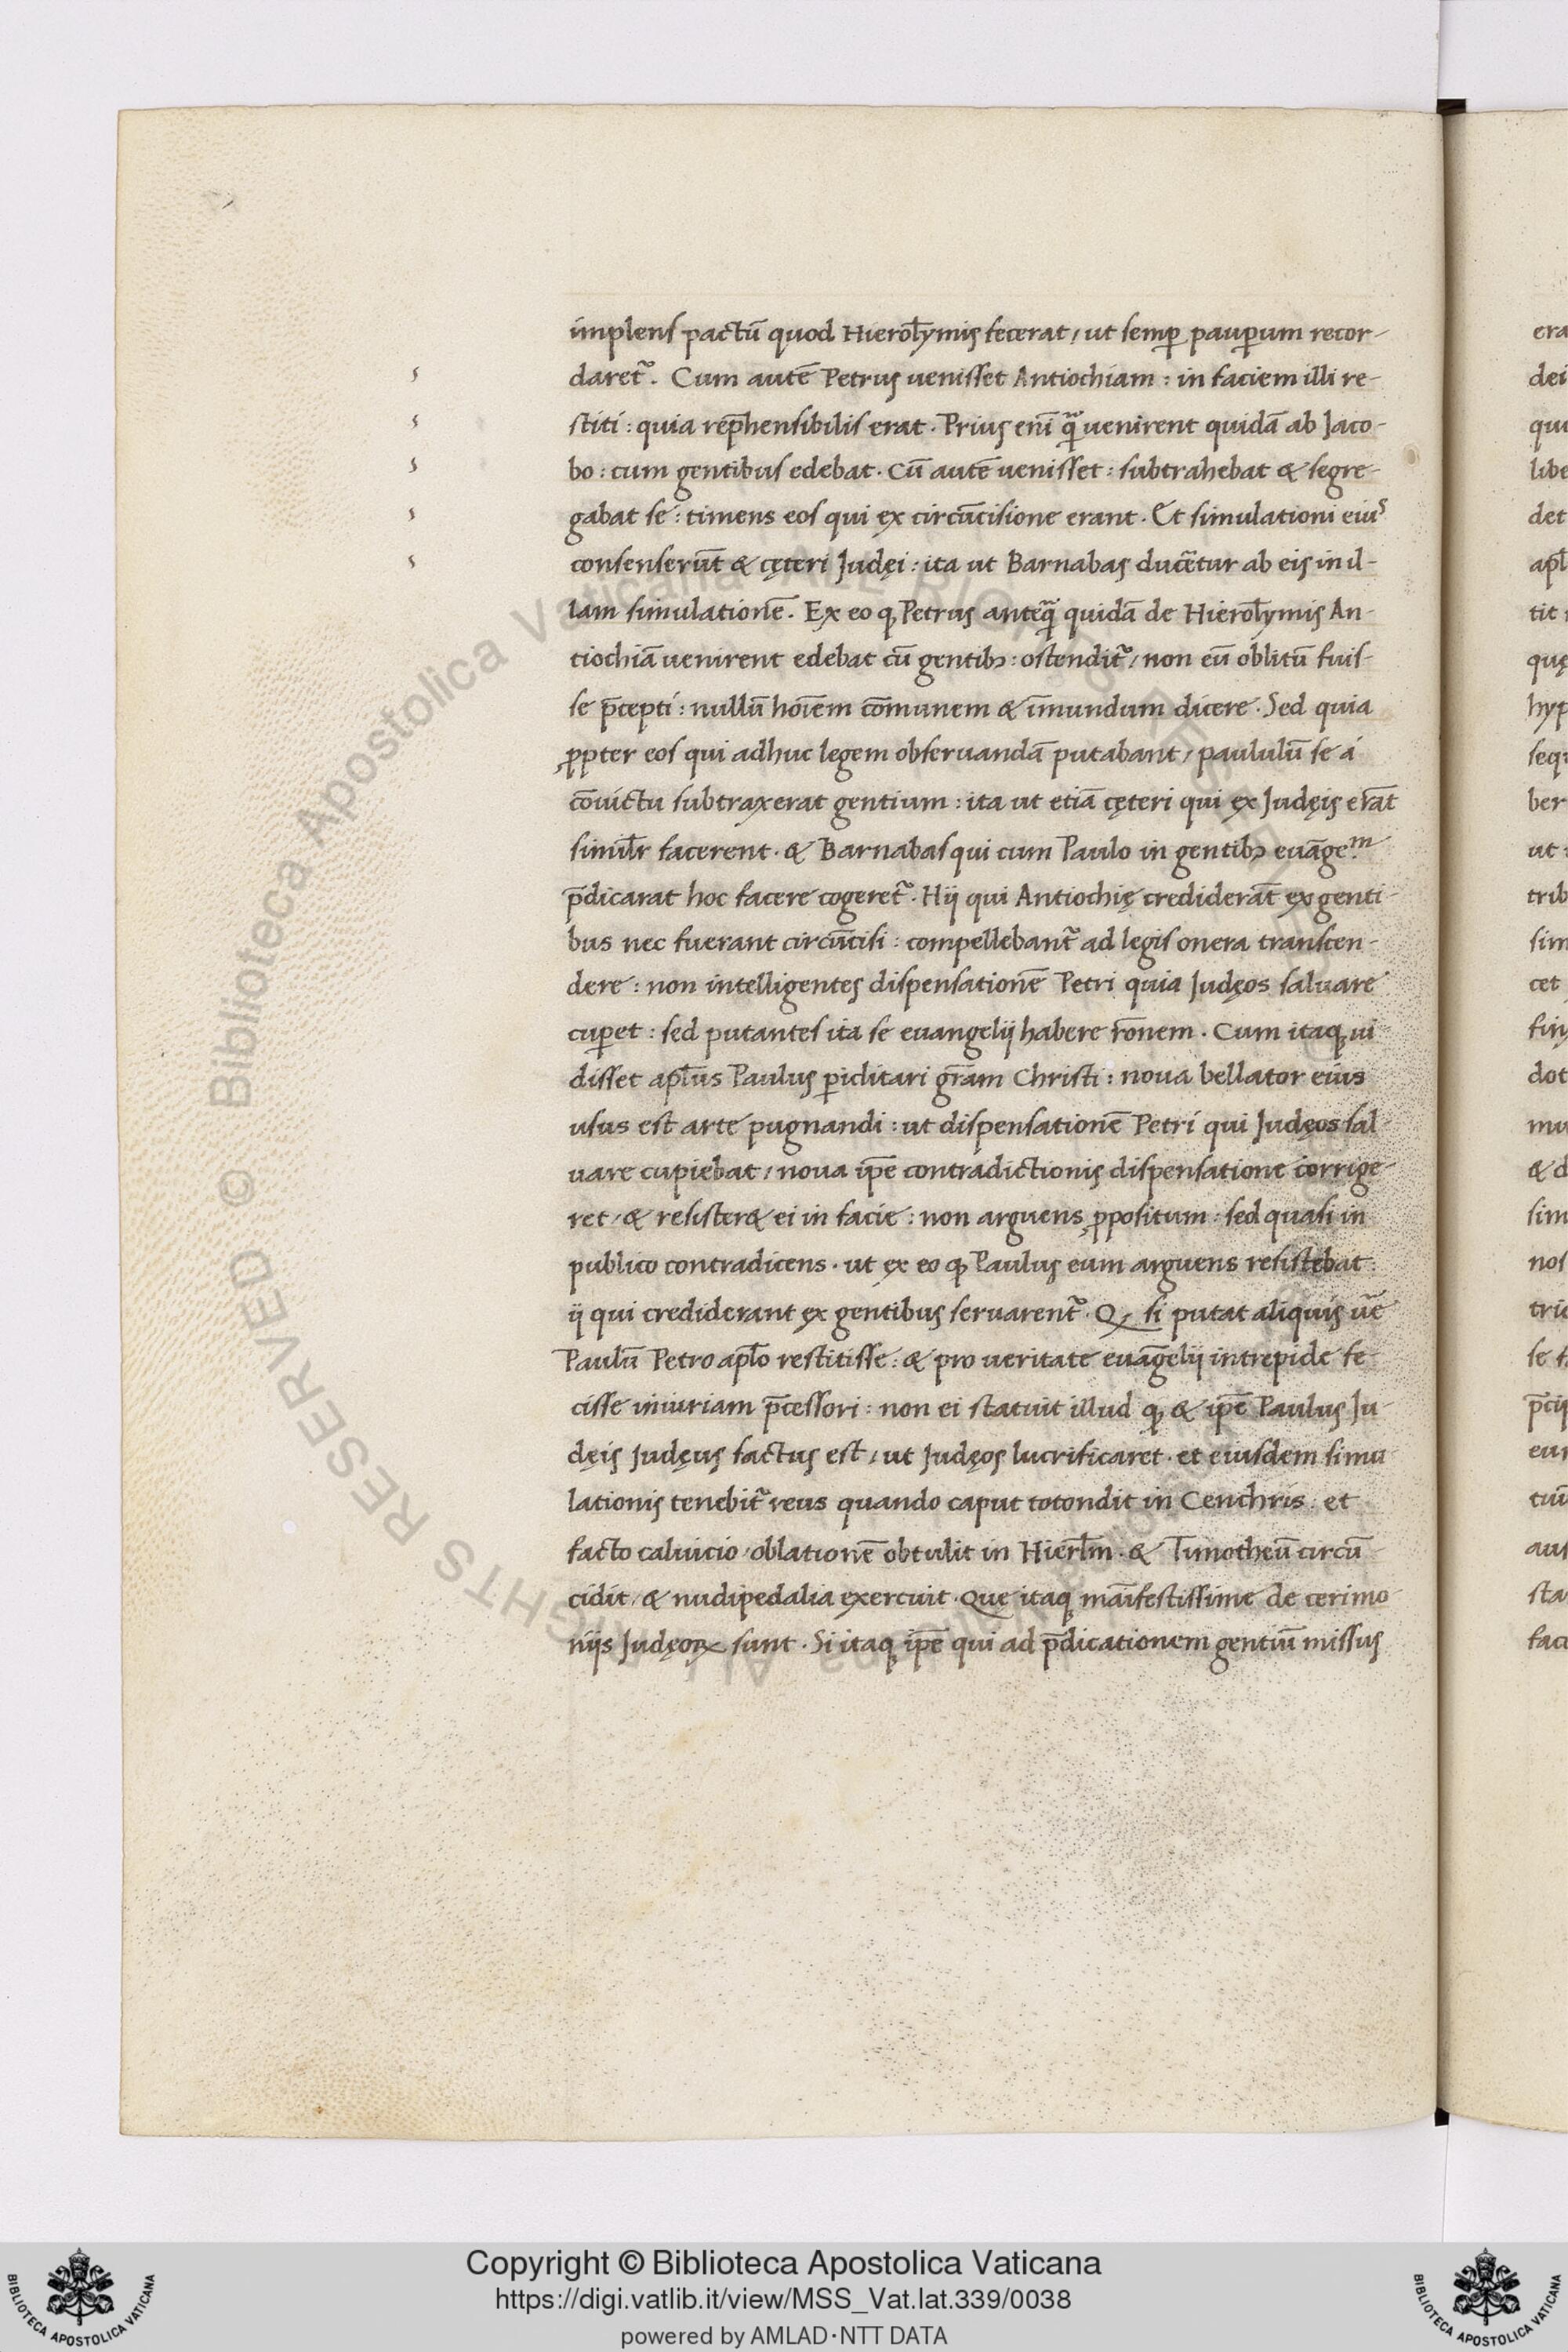 implens pactū quod Hierol̄ymis fecerat, ut semꝑ pauꝑum recor-
daretᷣ. Cum autē Petrus uenisset Antiochiam: in faciem illi re-
stiti: quia rep̄hensibilis erat. Prius eni̅ qᷓ uenirent quidā ab Jaco-
bo: cum gentibus edebat. Cū autē uenisset: subtrahebat & segre-
gabat se: timens eos qui ex circūcisione erant. Et simulationi eiuˢ
consenserūt & cęteri Judęi: ita ut Barnabas ducēt̄ur ab eis in il-
lam simulationē. Ex eo ꝙ Petrus anteqᷓ quidā de Hierol̄ymis An-
tiochiā uenirent edebat cū gentibꝫ: ostenditᷣ, non eū oblitū fuis-
se p̄cepti: nullū hoi̅em co̅munem & i̅mundum dicere. Sed quia
ꝓpter eos qui adhuc legem obseruandā putabant, paululū se á
co̅uictu subtraxerat gentium: ita ut etiā cęteri qui ex Judęis erāt
simil̄r facerent. & Barnabas qui cum Paulo in gentibꝫ euāge.ᵐ
p̄dicarat hoc facere cogeretᷣ. Hij qui Antiochię crediderāt ex genti-
bus nec fuerant circūcisi: compellebantᷣ ad legis onera transcen-
dere: non intelligentes dispensationē Petri quia Judęos saluare
cuꝑet: sed putantes ita se euangelij habere ro̅nem. Cum itaqꝫ ui
disset apl̄us Paulus ꝑiclitari gr̄am Christi: noua bellator eius
usus est arte pugnandi: ut dispensationē Petri qui Judęos sal-
uare cupiebat, noua ip̄e contradictionis dispensatione corrige-
ret, & resister& ei in facie: non arguens ꝓpositum: sed quasi in
publico contradicens. ut ex eo ꝙ Paulus eum arguens resistebat:
ij qui crediderant ex gentibus seruarentᷣ. Qꝫ si putat aliquis ue̅
Paulū Petro apl̄o restitisse: & pro ueritate euāgelij intrepide fe-
cisse iniuriam p̄cessori: non ei statuit illud ꝙ & ip̄e Paulus Ju-
dęis Judęus factus est, ut Judęos lucrificaret. et eiusdem simu-
lationis tenebitᷣ reus quando caput totondit in Cenchris: et
facto caluicio, oblationē obtulit in Hierl̄m. & Timotheū circū
cidit, & nudipedalia exercuit. Que itaqꝫ mai̅festissime de cerimo-
nijs Judęoꝝ sunt. Si itaqꝫ ip̄e qui ad p̄dicationem gentiū missus
© Biblioteca Apostolica Vaticana
ALL RIGHTS RESERVED
Copyright © Biblioteca Apostolica Vaticana
https://digi.vatlib.it/view/MSS_Vat.lat.339/0038
powered by AMLAD·NTT DATA
BIBLIOTECA APOSTOLICA VATICANA
BIBLIOTECA APOSTOLICA VATICANA